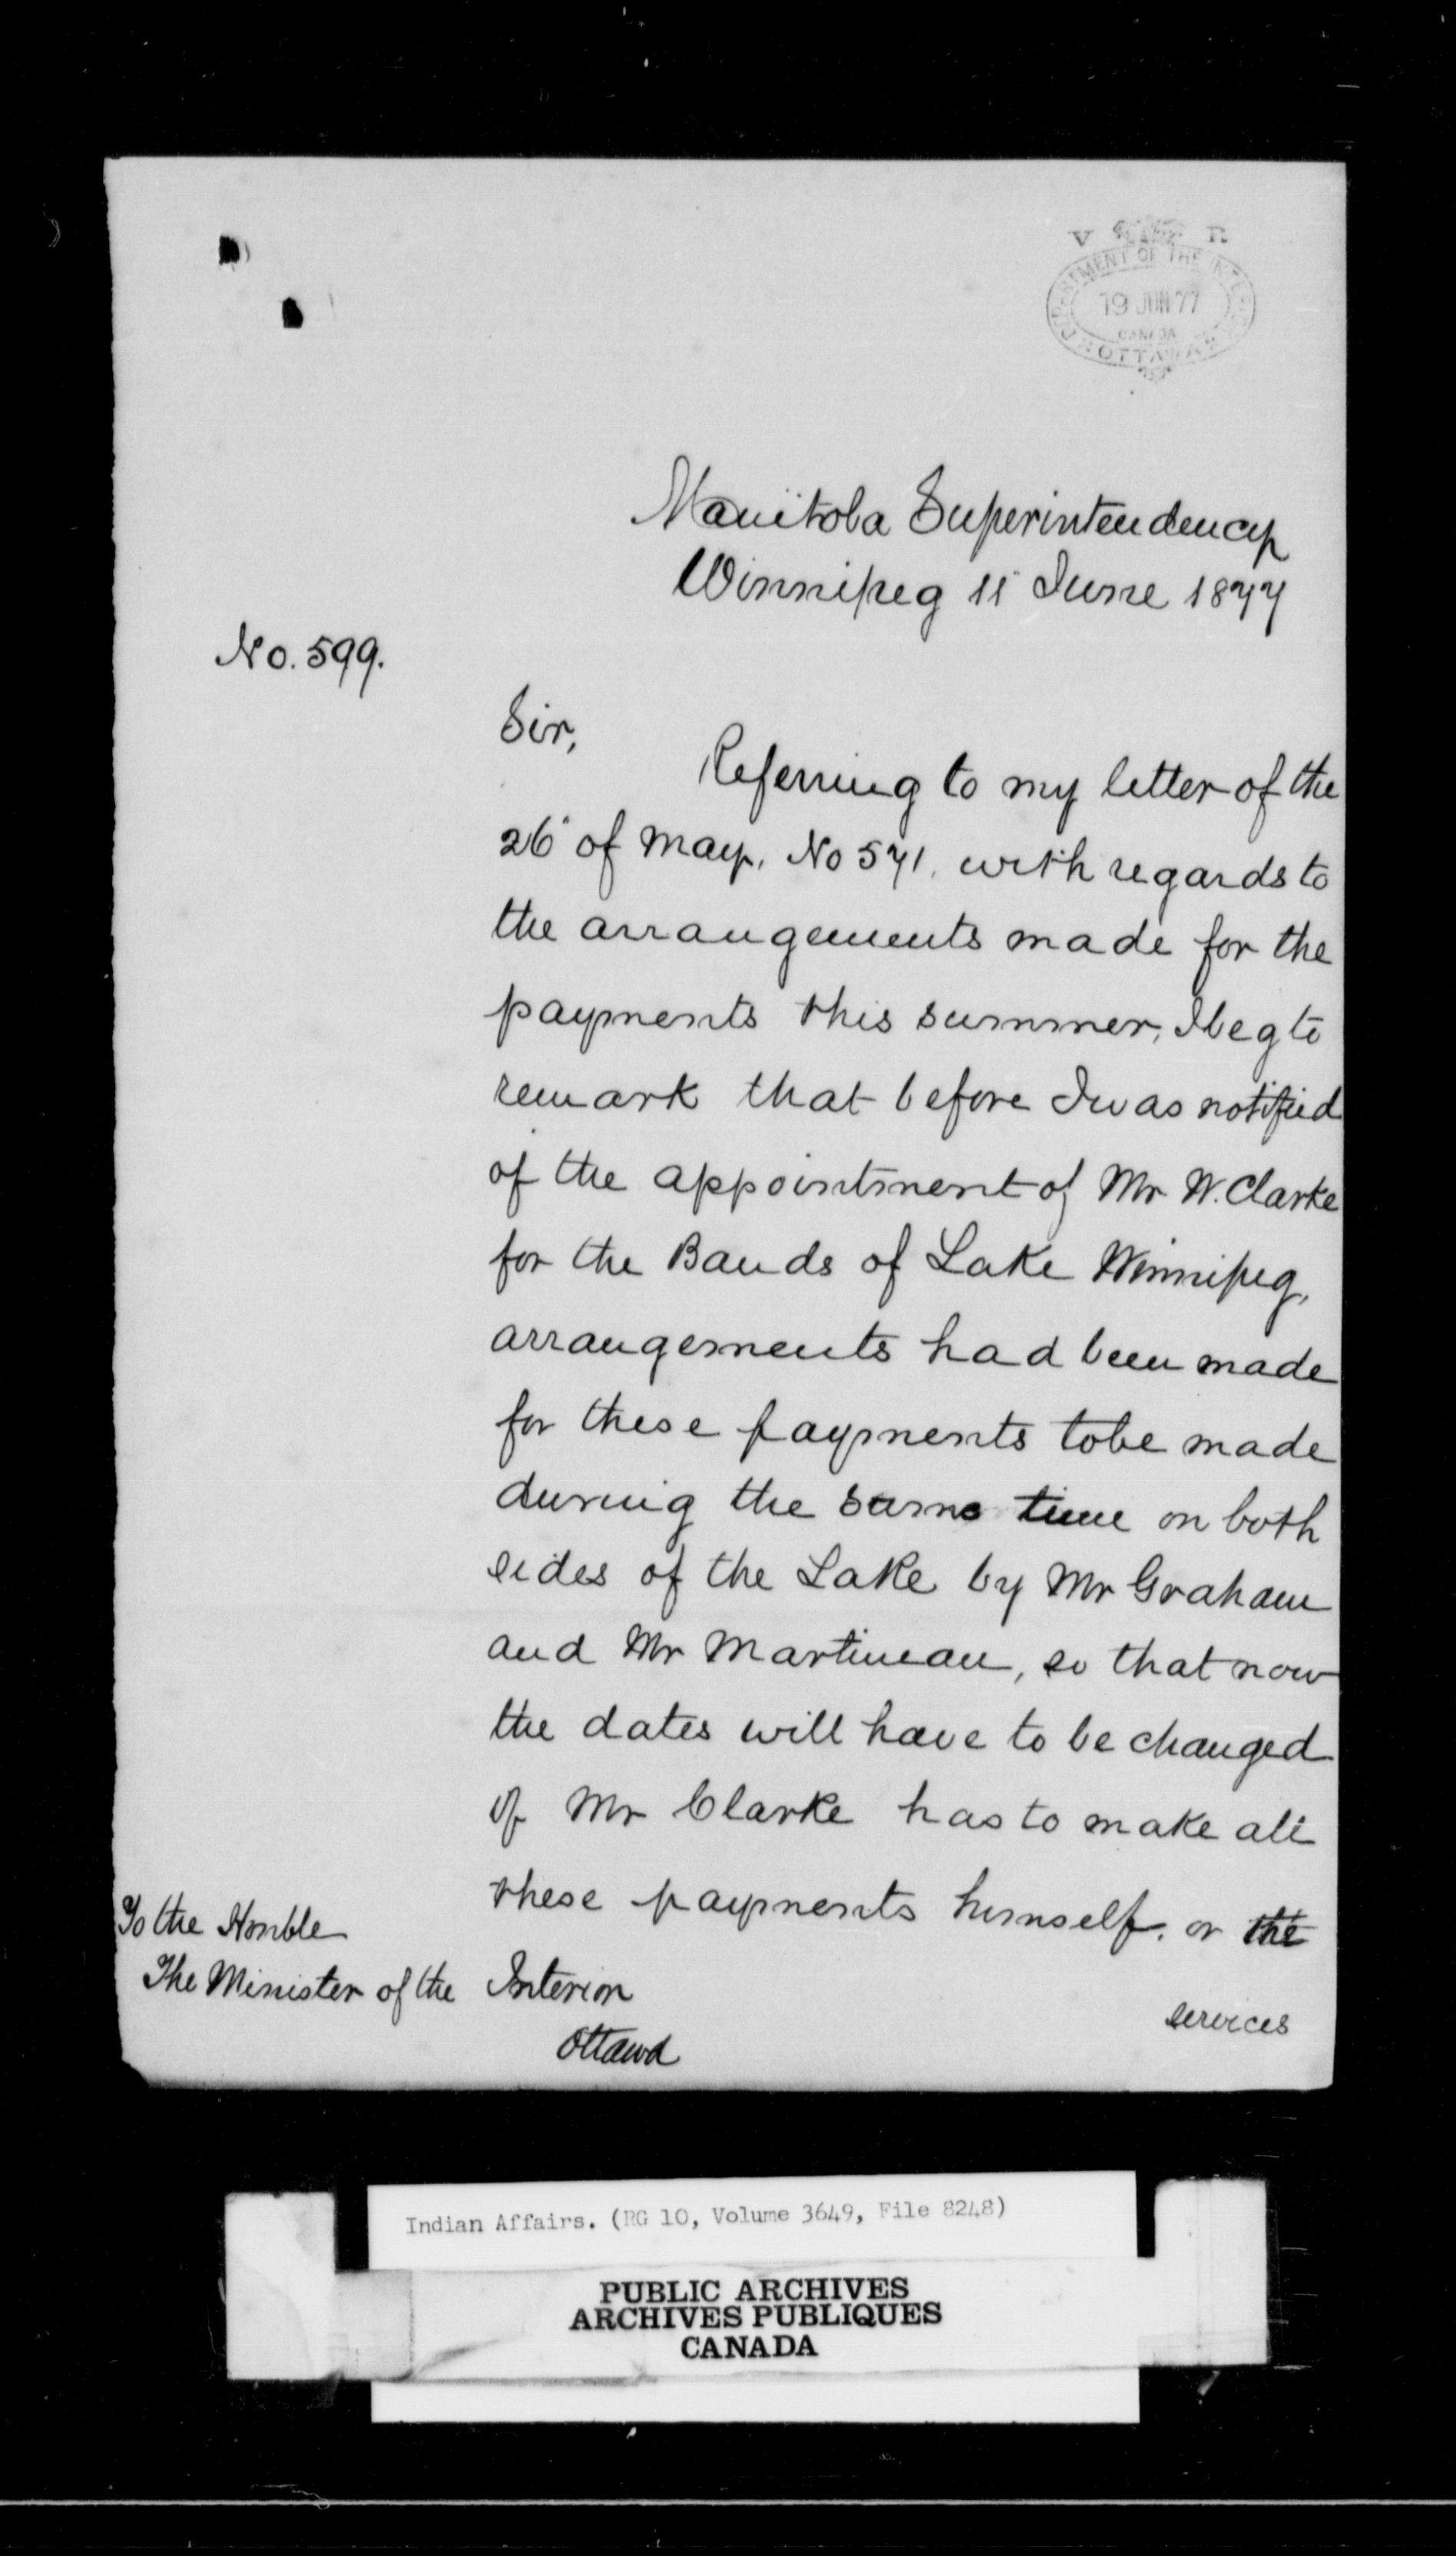 V R
DEPARTMENT OF THE INTERIOR
19 JUN 77
CANADA
OTTAWA
Manitoba Superintendency
Winnipeg 11 June 1877
No. 599.
Sir,
Referring to my letter of the
26 of May, No 571, with regards to
the arrangements made for the
payments this summer, I beg to
remark that before I was notified
of the appointment of Mr W. Clarke
for the Bands of Lake Winnipeg,
arrangements had been made
for these payments to be made
during the same time on both
sides of the Lake by Mr Graham
and Mr Martineau, so that now
the dates will have to be changed
if Mr Clarke has to make all
these payments himself, or the
services
To the Honble
The Minister of the Interior
Ottawa
Indian Affairs. (RG 10, Volume 3649, File 8248)
PUBLIC ARCHIVES
ARCHIVES PUBLIQUES
CANADA